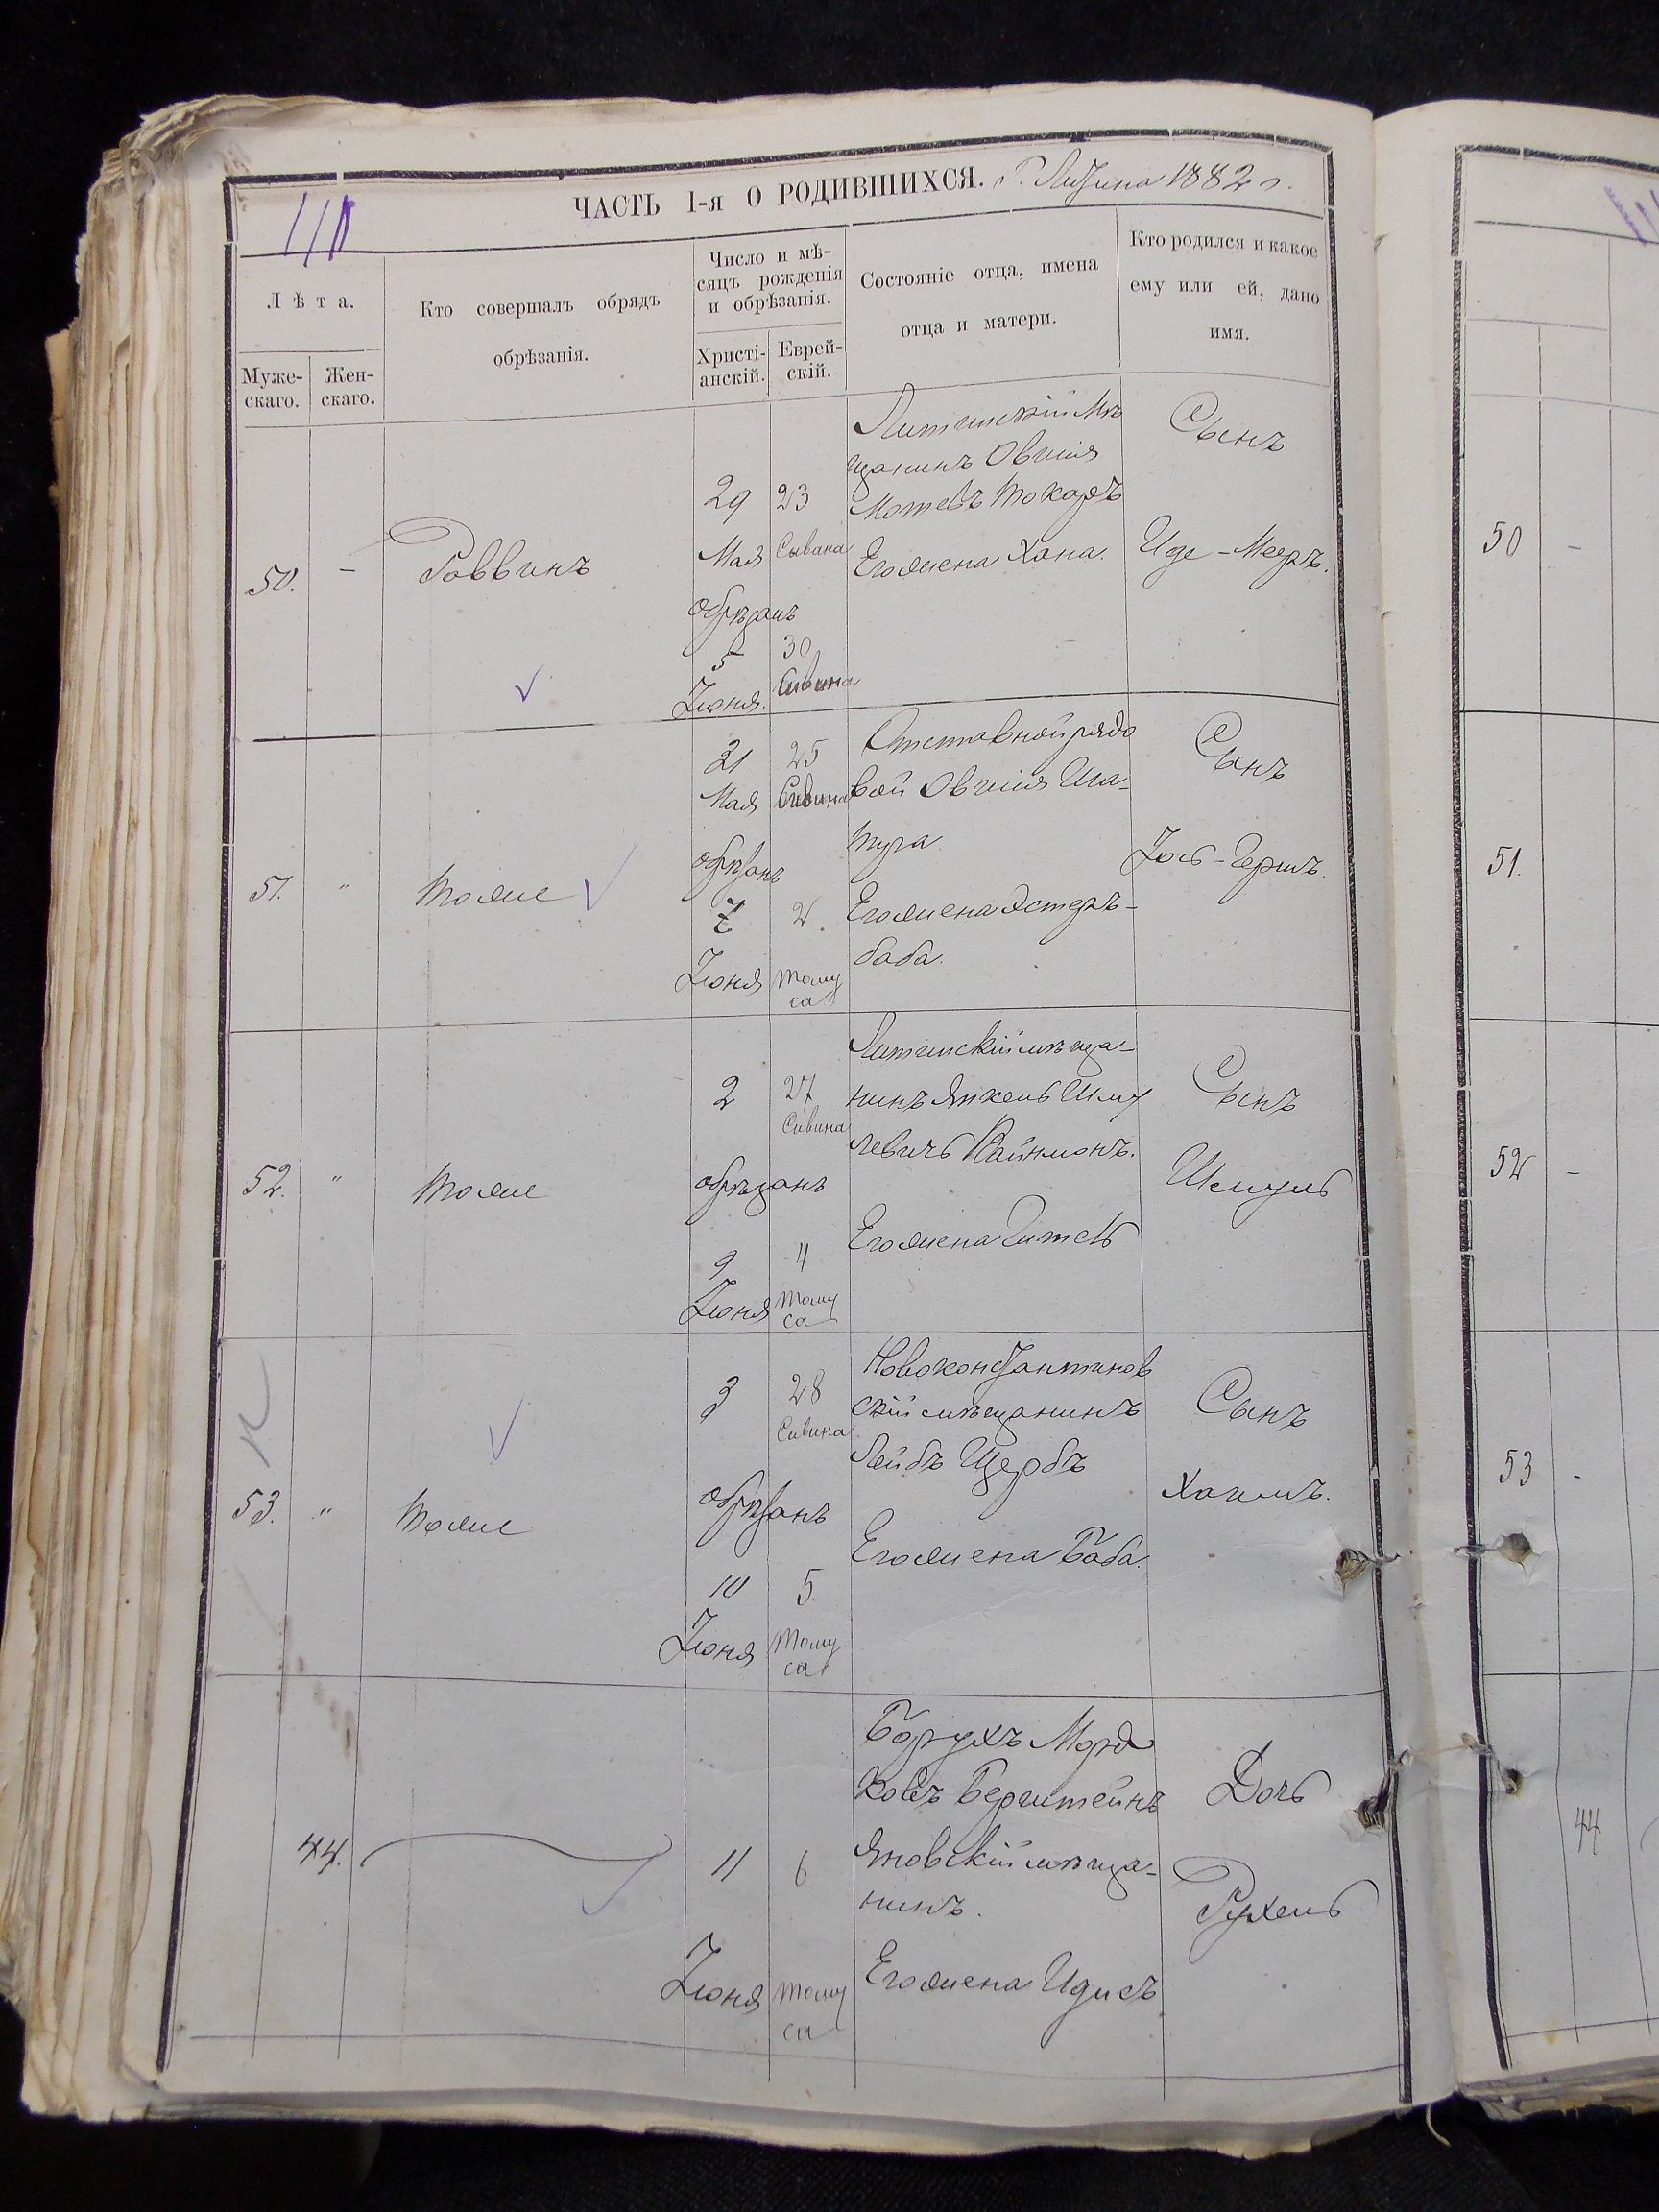 ЧАСТЬ 1-я О РОДИВШИХСЯ. г. Литина 1882 г.
Лѣта.
Муже-
скаго.
Жен-
скаго.
Кто совершалъ обрядъ
обрѣзанія.
Число и мѣ-
сяцъ рожденія
и обрѣзанія.
Христі-
анскій.
Еврей-
скій.
Состояніе отца, имена
отца и матери.
Кто родился и какое
ему или ей, дано
имя.
50.
-
Раввинъ
29
Мая
23
Сывана
обрѣзанъ
5
Іюня.
30
Сивина
Литинскій мѣ
щанинъ Овшія
Мотевъ Токаръ
Его жена Хана.
Сынъ
Иде-Мееръ.
51.
"
Тоже
31
Мая
25
Сивина
обрѣзанъ
7
Іюня
2.
Тому
са
Отставной рядо
вой Овшія Ша-
Его жена Эстеръ-
баба.
Сынъ
Іось-Гершъ.
52.
"
Тоже
2
27
Сивина
обрѣзанъ
9
Іюня
4
Тому
са
Литинскій мѣща-
нинъ Янкель Шму
левичъ
Его жена Гитель
Сынъ
Шмуль
53.
"
Тоже
3
28
Сивина
обрѣзанъ
10
Іюня
5
Тому
са
Новоконстантинов
скій мѣщанинъ
Лейбъ Щербъ
Его жена Баба.
Сынъ
Хаимъ.
44.
11
Іюня
6
Тому
са
Борухъ Морд
ковъ Берштейнъ
Яновскій мѣща-
нинъ.
Его жена Идисъ
Дочь
Рухель
50
-
51.
52
-
53
-
44